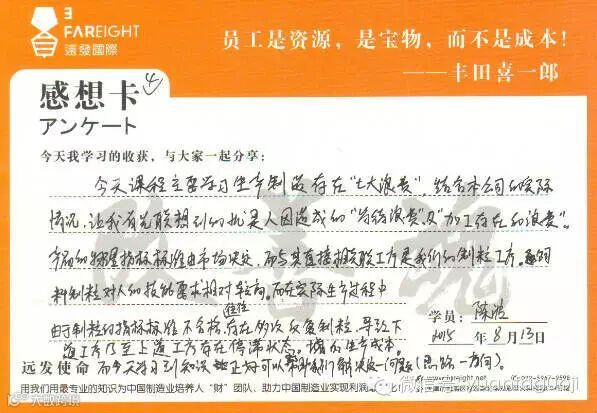 FAREIGHT
遠發國際
员工是资源，是宝物，而不是成本！
——丰田喜一郎
感想卡 4
アンケート
今天我学习的收获，与大家一起分享：
今天课程主要学习生产制造存在"七大浪费"，结合本公司的实际
情况，让我首先联想到的就是人因造成的"等待浪费"及"加工存在的浪费"。
产品的物理指标标准由市场决定，而与其直接相关联工序是我们的制粒工序。
料制粒对人的技能要求相对较高，而在实际生产过程中
由于制粒的指标标准不合格，往往存在多次反复制粒，导致下
道工序乃至上道工序存在停滞状态，增加生产成本。
而今天学习到知识 正好可以帮助我们解决这一问题（思路一方向）。
学员：陈浩
2015 年 8 月 13 日
远发使命
用我们用最专业的知识为中国制造业培养人“财”团队，助力中国制造业实现利润
大数跨境